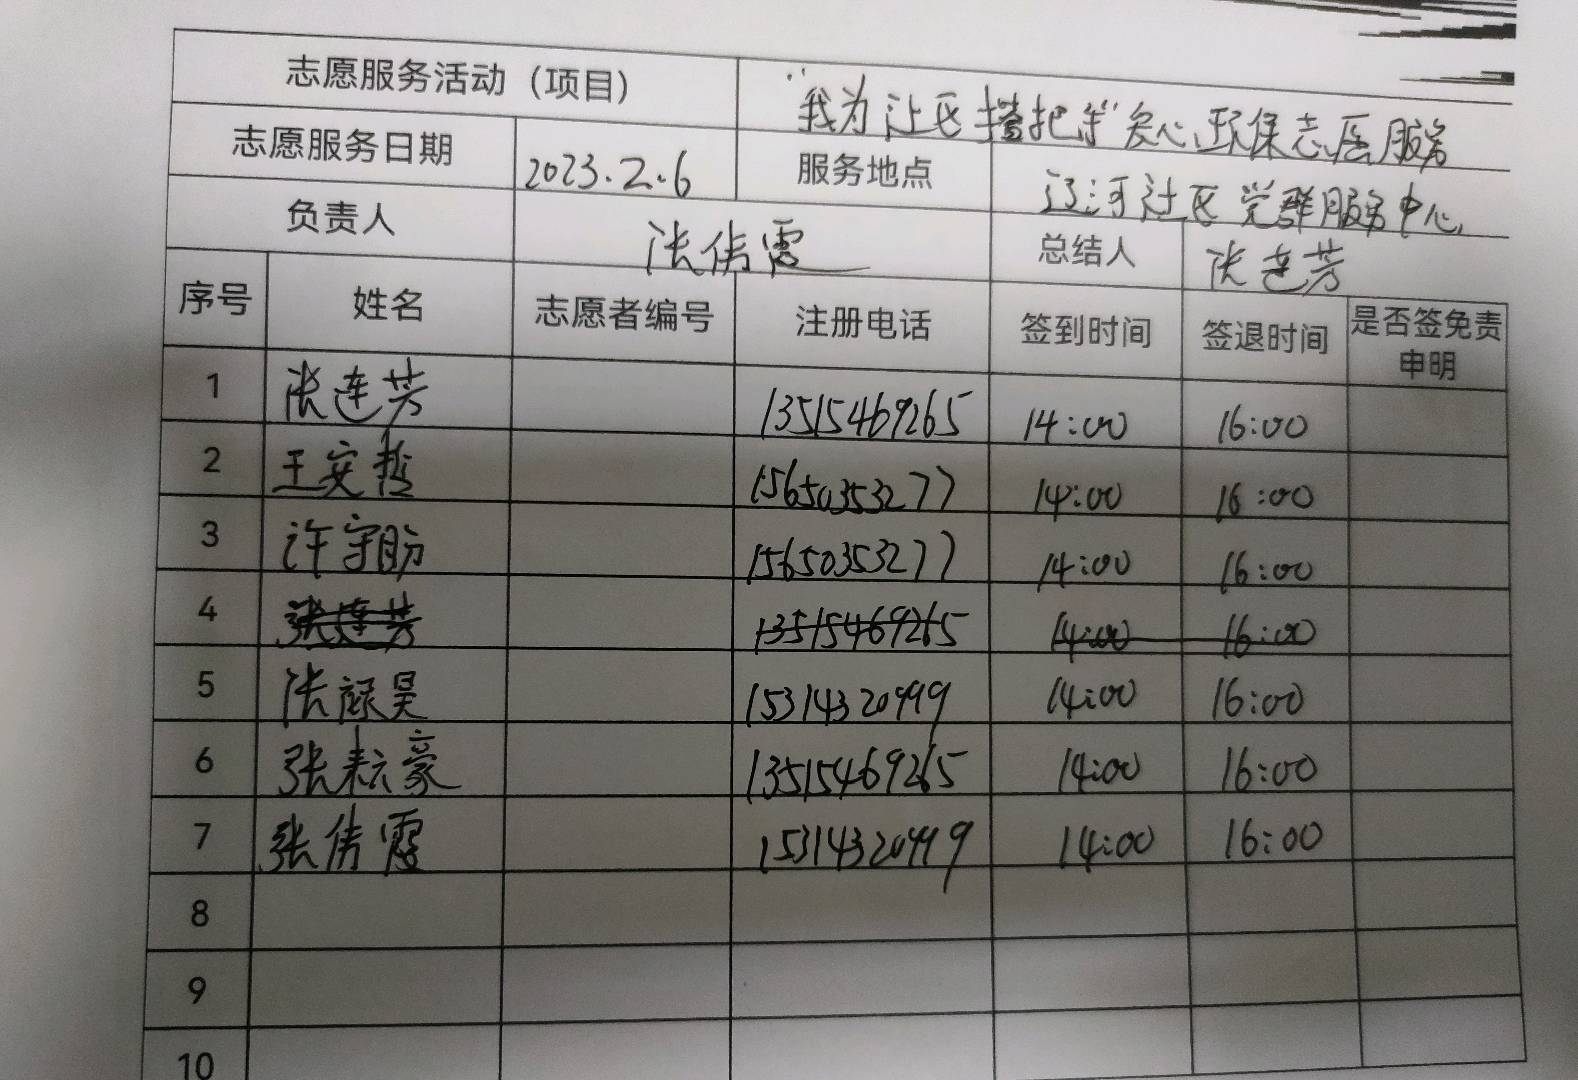 志愿服务活动（项目） “我为社区搭把手”爱心环保志愿服务
志愿服务日期 2023.2.6 服务地点 辽河社区党群服务中心
负责人 张倩霞 总结人 张连芳
序号 姓名 志愿者编号 注册电话 签到时间 签退时间 是否签免责申明
1 张连芳 13515469265 14:00 16:00
2 王安哲 15650353277 14:00 16:00
3 许守盼 15650353277 14:00 16:00
4 张连芳 13515469265 14:00 16:00
5 张禄昊 15314320999 14:00 16:00
6 张耘豪 13515469265 14:00 16:00
7 张倩霞 15314320999 14:00 16:00
8
9
10